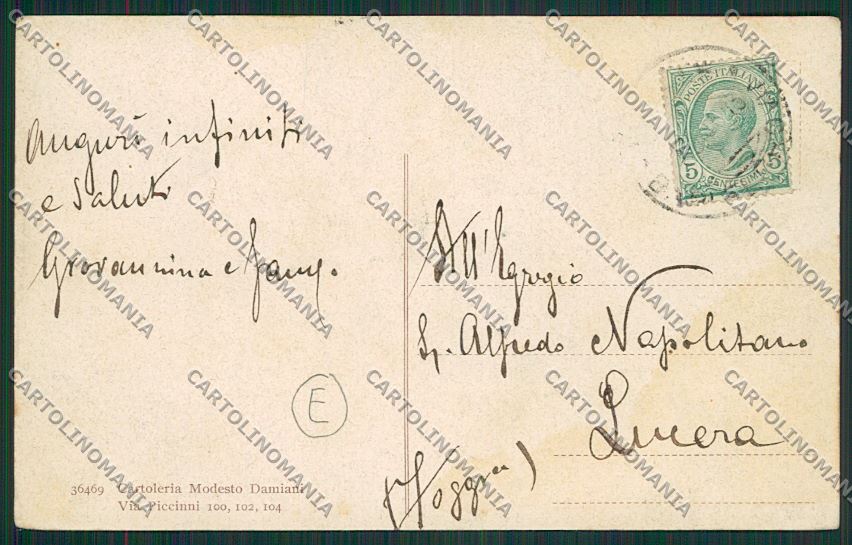 Auguri infiniti
e Saluti
Giovannina e fam.
E
36469 Cartoleria Modesto Damiani
Via Piccinni 100, 102, 104
POSTE ITALIANE
5 5
CENTESIMI
All'Egregio
Sg. Alfredo Napolitano
Lucera
(Foggia)
CARTOLINOMANIA